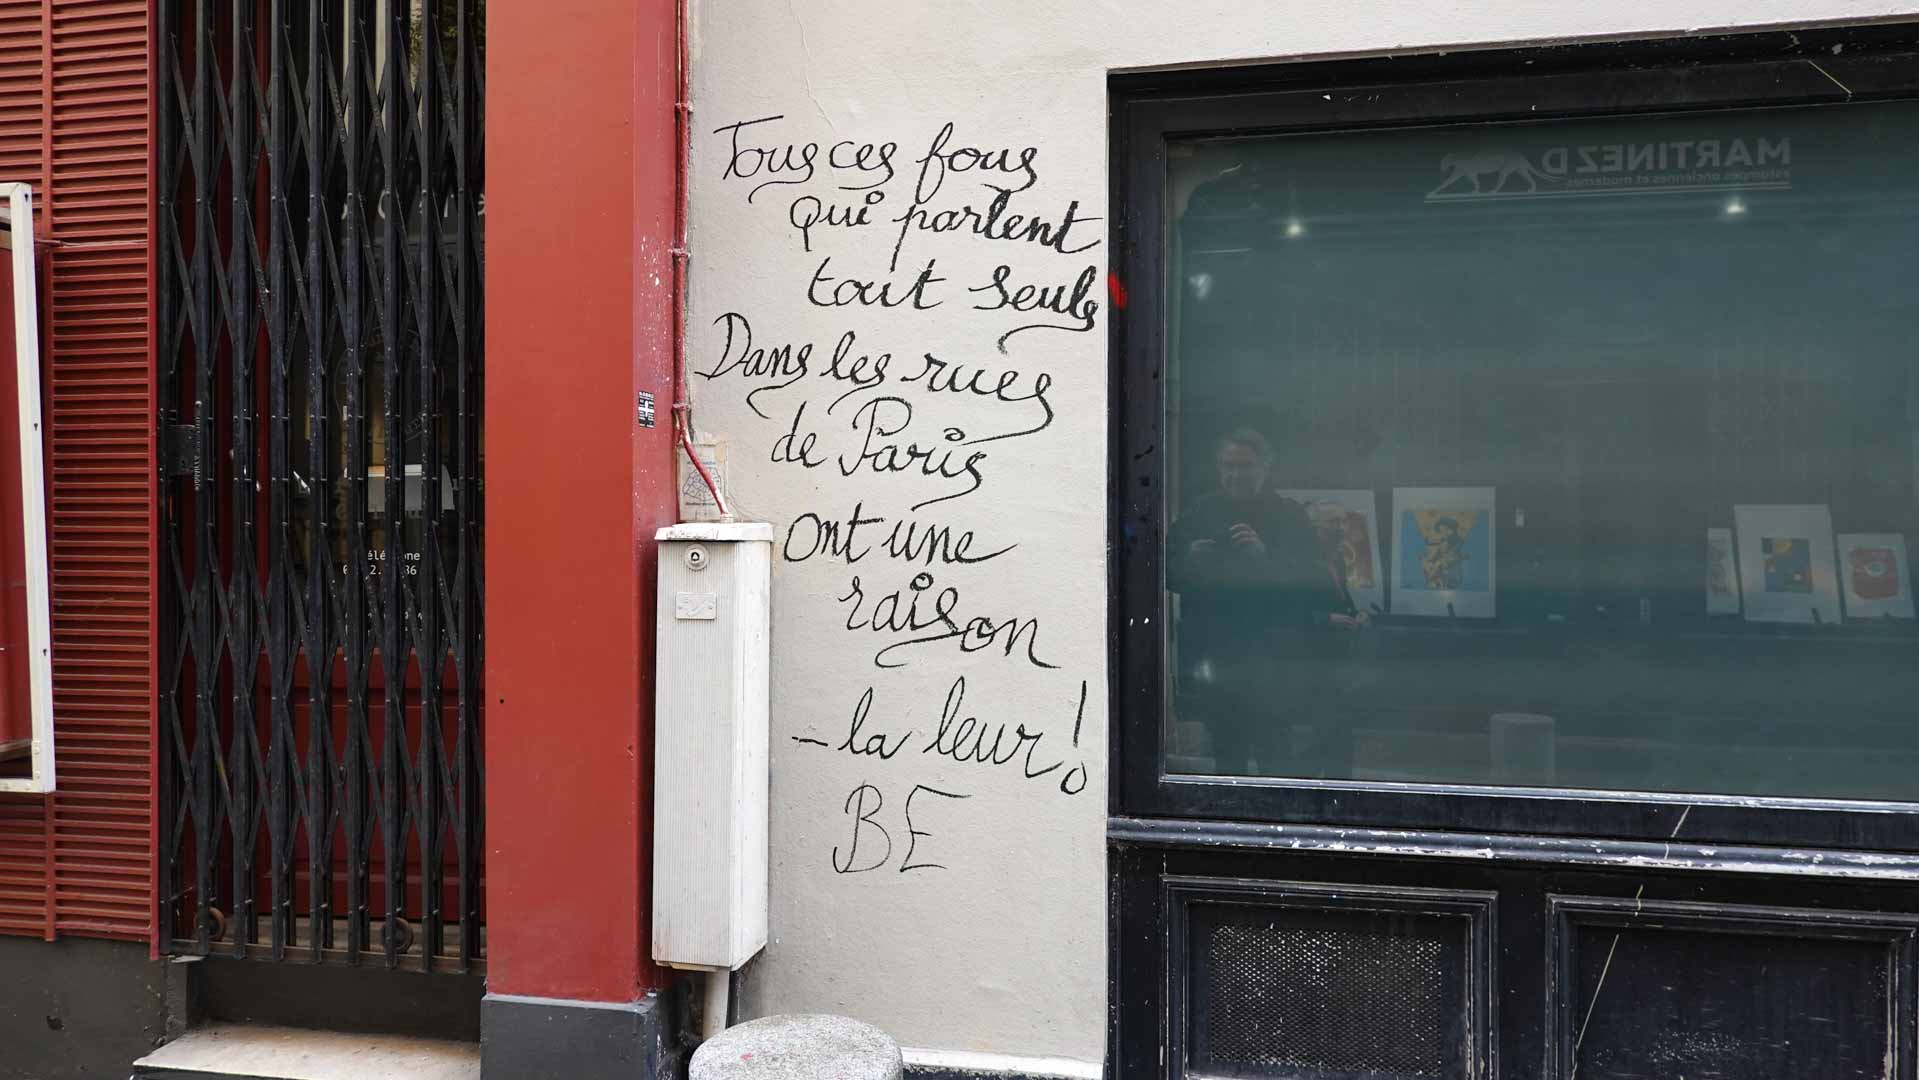 Tous ces fous
qui parlent
tout seuls
Dans les rues
de Paris
ont une
raison
- la leur !
BE
MARTINEZ D
estampes anciennes et modernes